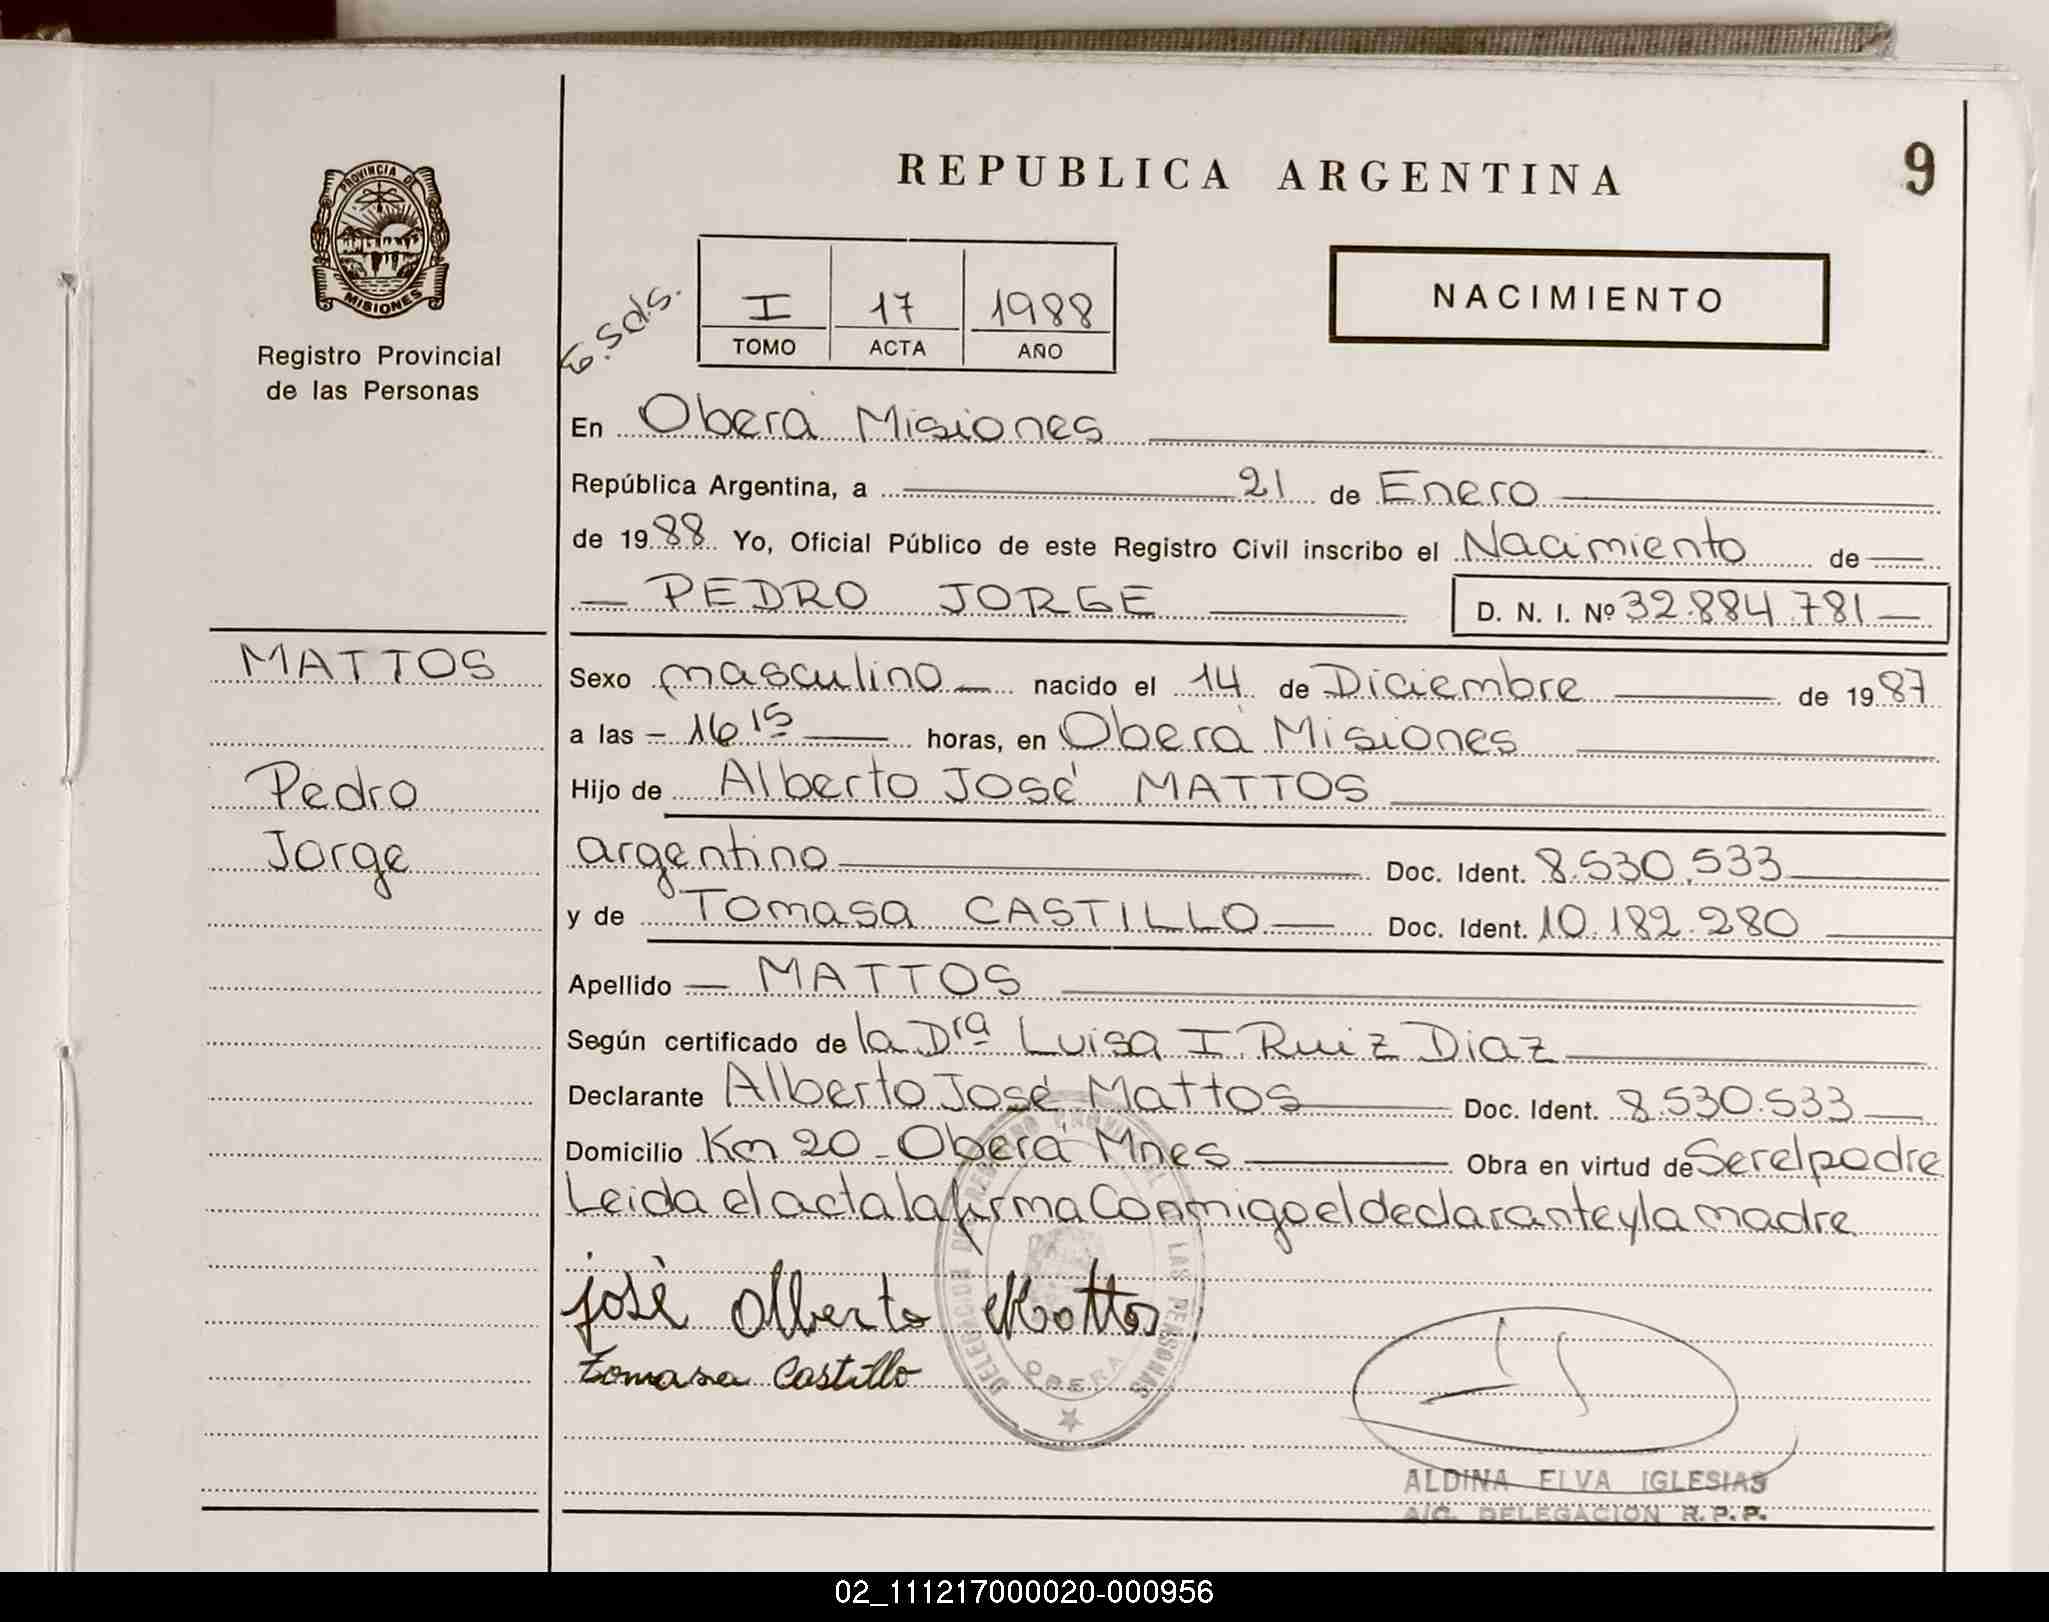 REPUBLICA ARGENTINA
9
PROVINCIA DE
MISIONES
Registro Provincial
de las Personas
I 17 1988
TOMO ACTA AÑO
NACIMIENTO
En Oberá Misiones
República Argentina, a 21 de Enero
de 1988 Yo, Oficial Público de este Registro Civil inscribo el Nacimiento de
PEDRO JORGE D. N. I. Nº 32.884.781
MATTOS
Pedro
Jorge
Sexo masculino nacido el 14 de Diciembre de 1987
a las 16 15 horas, en Oberá Misiones
Hijo de Alberto José MATTOS
argentino Doc. Ident. 8.530.533
y de Tomasa CASTILLO Doc. Ident. 10.182.280
Apellido MATTOS
Según certificado de la Dra Luisa I. Ruiz Diaz
Declarante Alberto José Mattos Doc. Ident. 8.530.533
Domicilio Km 20 - Oberá Mnes Obra en virtud de Ser el padre
Leida el acta la firma Conmigo el declarante y la madre
josè Alberto Mattos
tomasa Castillo
DELEGACION DE REGISTRO PROVINCIAL DE LAS PERSONAS
OBERA
ALDINA ELVA IGLESIAS
A/C. DELEGACION R.P.P.
02_111217000020-000956